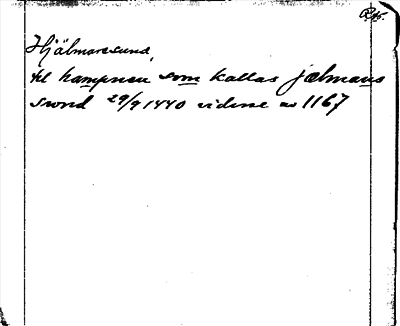 Hjälmaresund,
til hampnen som kallas jælmans
swnd 29/9 1440 vidisse av 1167